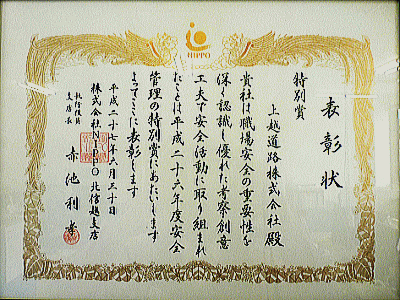 NIPPO
表彰状
特別賞
上越道路株式会社 殿
貴社は職場安全の重要性を
深く認識し優れた考察創意
工夫で安全活動に取り組まれ
たことは平成二十六年度安全
管理の特別賞にあたいします
よってここに表彰します
平成二十七年六月三十日
株式会社NIPPO 北信越支店
執行役員
支店長
赤池利孝